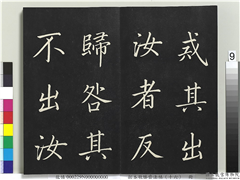 戒其出
汝者反
歸咎其
不出汝
9